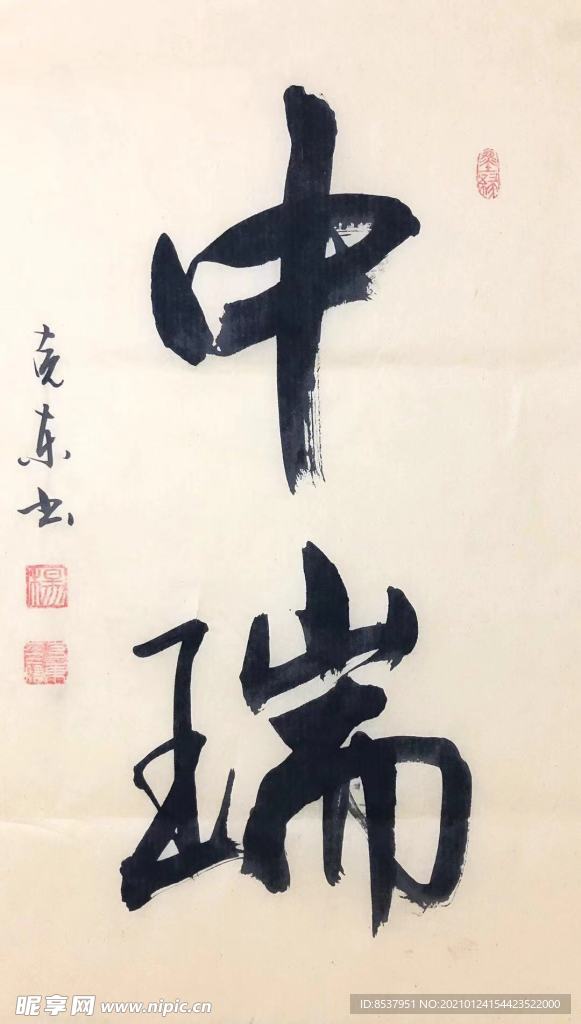 中瑞
克东书
楊
昵享网 www.nipic.cn
ID:8537951 NO:20210124154423522000